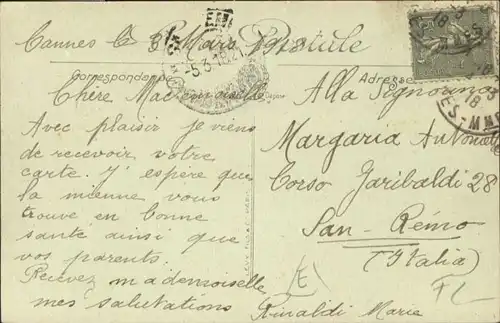 Cannes le 3 Mars 1918
Correspondance
Adresse
Chère Mademoiselle
Avec plaisir je viens
de recevoir votre
carte. J'espère que
la mienne vous
trouve en bonne
santé ainsi que
vos parents.
Recevez mademoiselle
mes salutations
Rinaldi Marie
Alla Signorina
Margaria Antoniette
Corso Garibaldi 28
San-Remo
(Italia)
(E)
-5.3.18.21